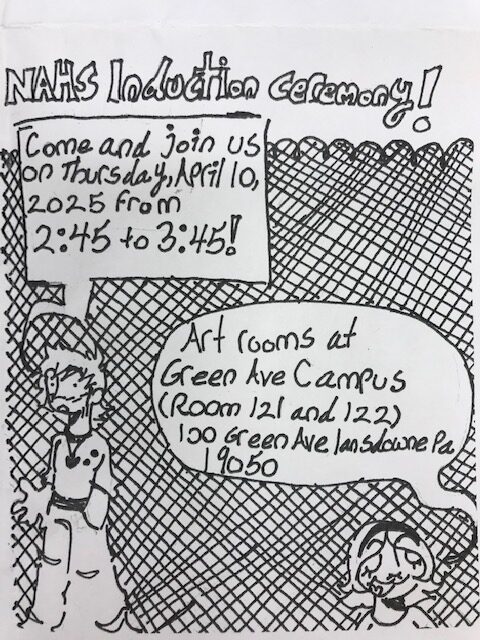 NAHS Induction Ceremony!
Come and join us
on Thursday, April 10,
2025 from
2:45 to 3:45!
Art rooms at
Green Ave Campus
(Room 121 and 122)
100 Green Ave lansdowne Pa
19050